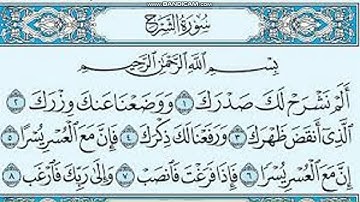 WWW.BANDICAM.COM
سُورَةُ الشَّرْحِ
بِسْمِ اللَّهِ الرَّحْمَٰنِ الرَّحِيمِ
أَلَمْ نَشْرَحْ لَكَ صَدْرَكَ ١ وَوَضَعْنَا عَنكَ وِزْرَكَ ٢
الَّذِي أَنقَضَ ظَهْرَكَ ٣ وَرَفَعْنَا لَكَ ذِكْرَكَ ٤ فَإِنَّ مَعَ الْعُسْرِ يُسْرًا ٥
إِنَّ مَعَ الْعُسْرِ يُسْرًا ٦ فَإِذَا فَرَغْتَ فَانصَبْ ٧ وَإِلَىٰ رَبِّكَ فَارْغَب ٨